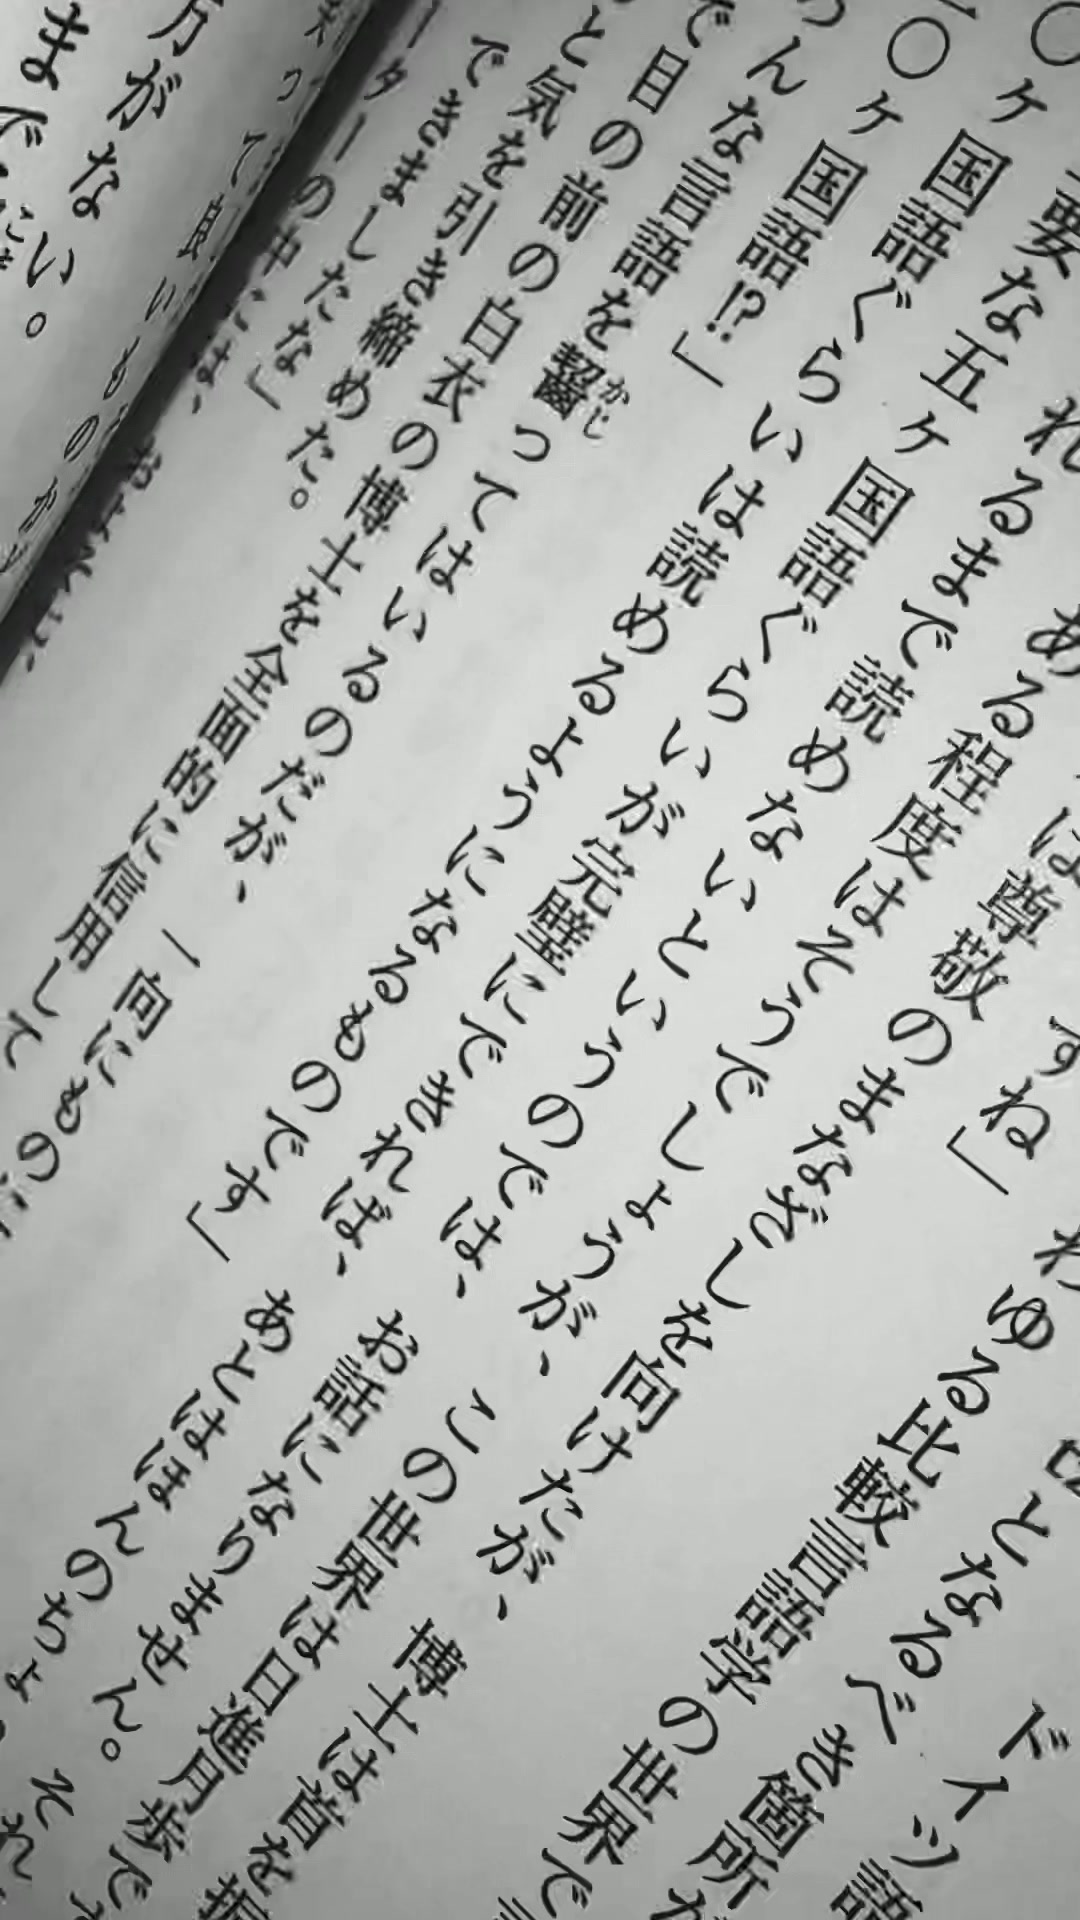 ドイツ語
となるべき箇所が
わゆる比較言語学の世界で
すね」
は尊敬のまなざしを向けたが、博士は首を振
ある程度はそうでしょうが、この世界は日進月歩で
れるまで読めないというのでは、お話になりません。それ
要な五ヶ国語ぐらいが完璧にできれば、あとはほんのちょ
〇ヶ国語ぐらいは読めるようになるものです」
〇ヶ国語!?」
んな言語を齧ってはいるのだが、一向にもの
かじ
で目の前の白衣の博士を全面的に信用して
と気を引き締めた。
できましたな」
ターの中には、
がない。
まで